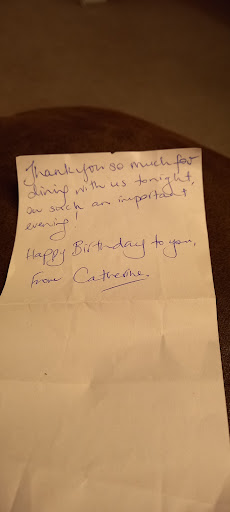 Thank you so much for
dining with us tonight,
on such an important
evening!
Happy Birthday to you,
from Catherine.